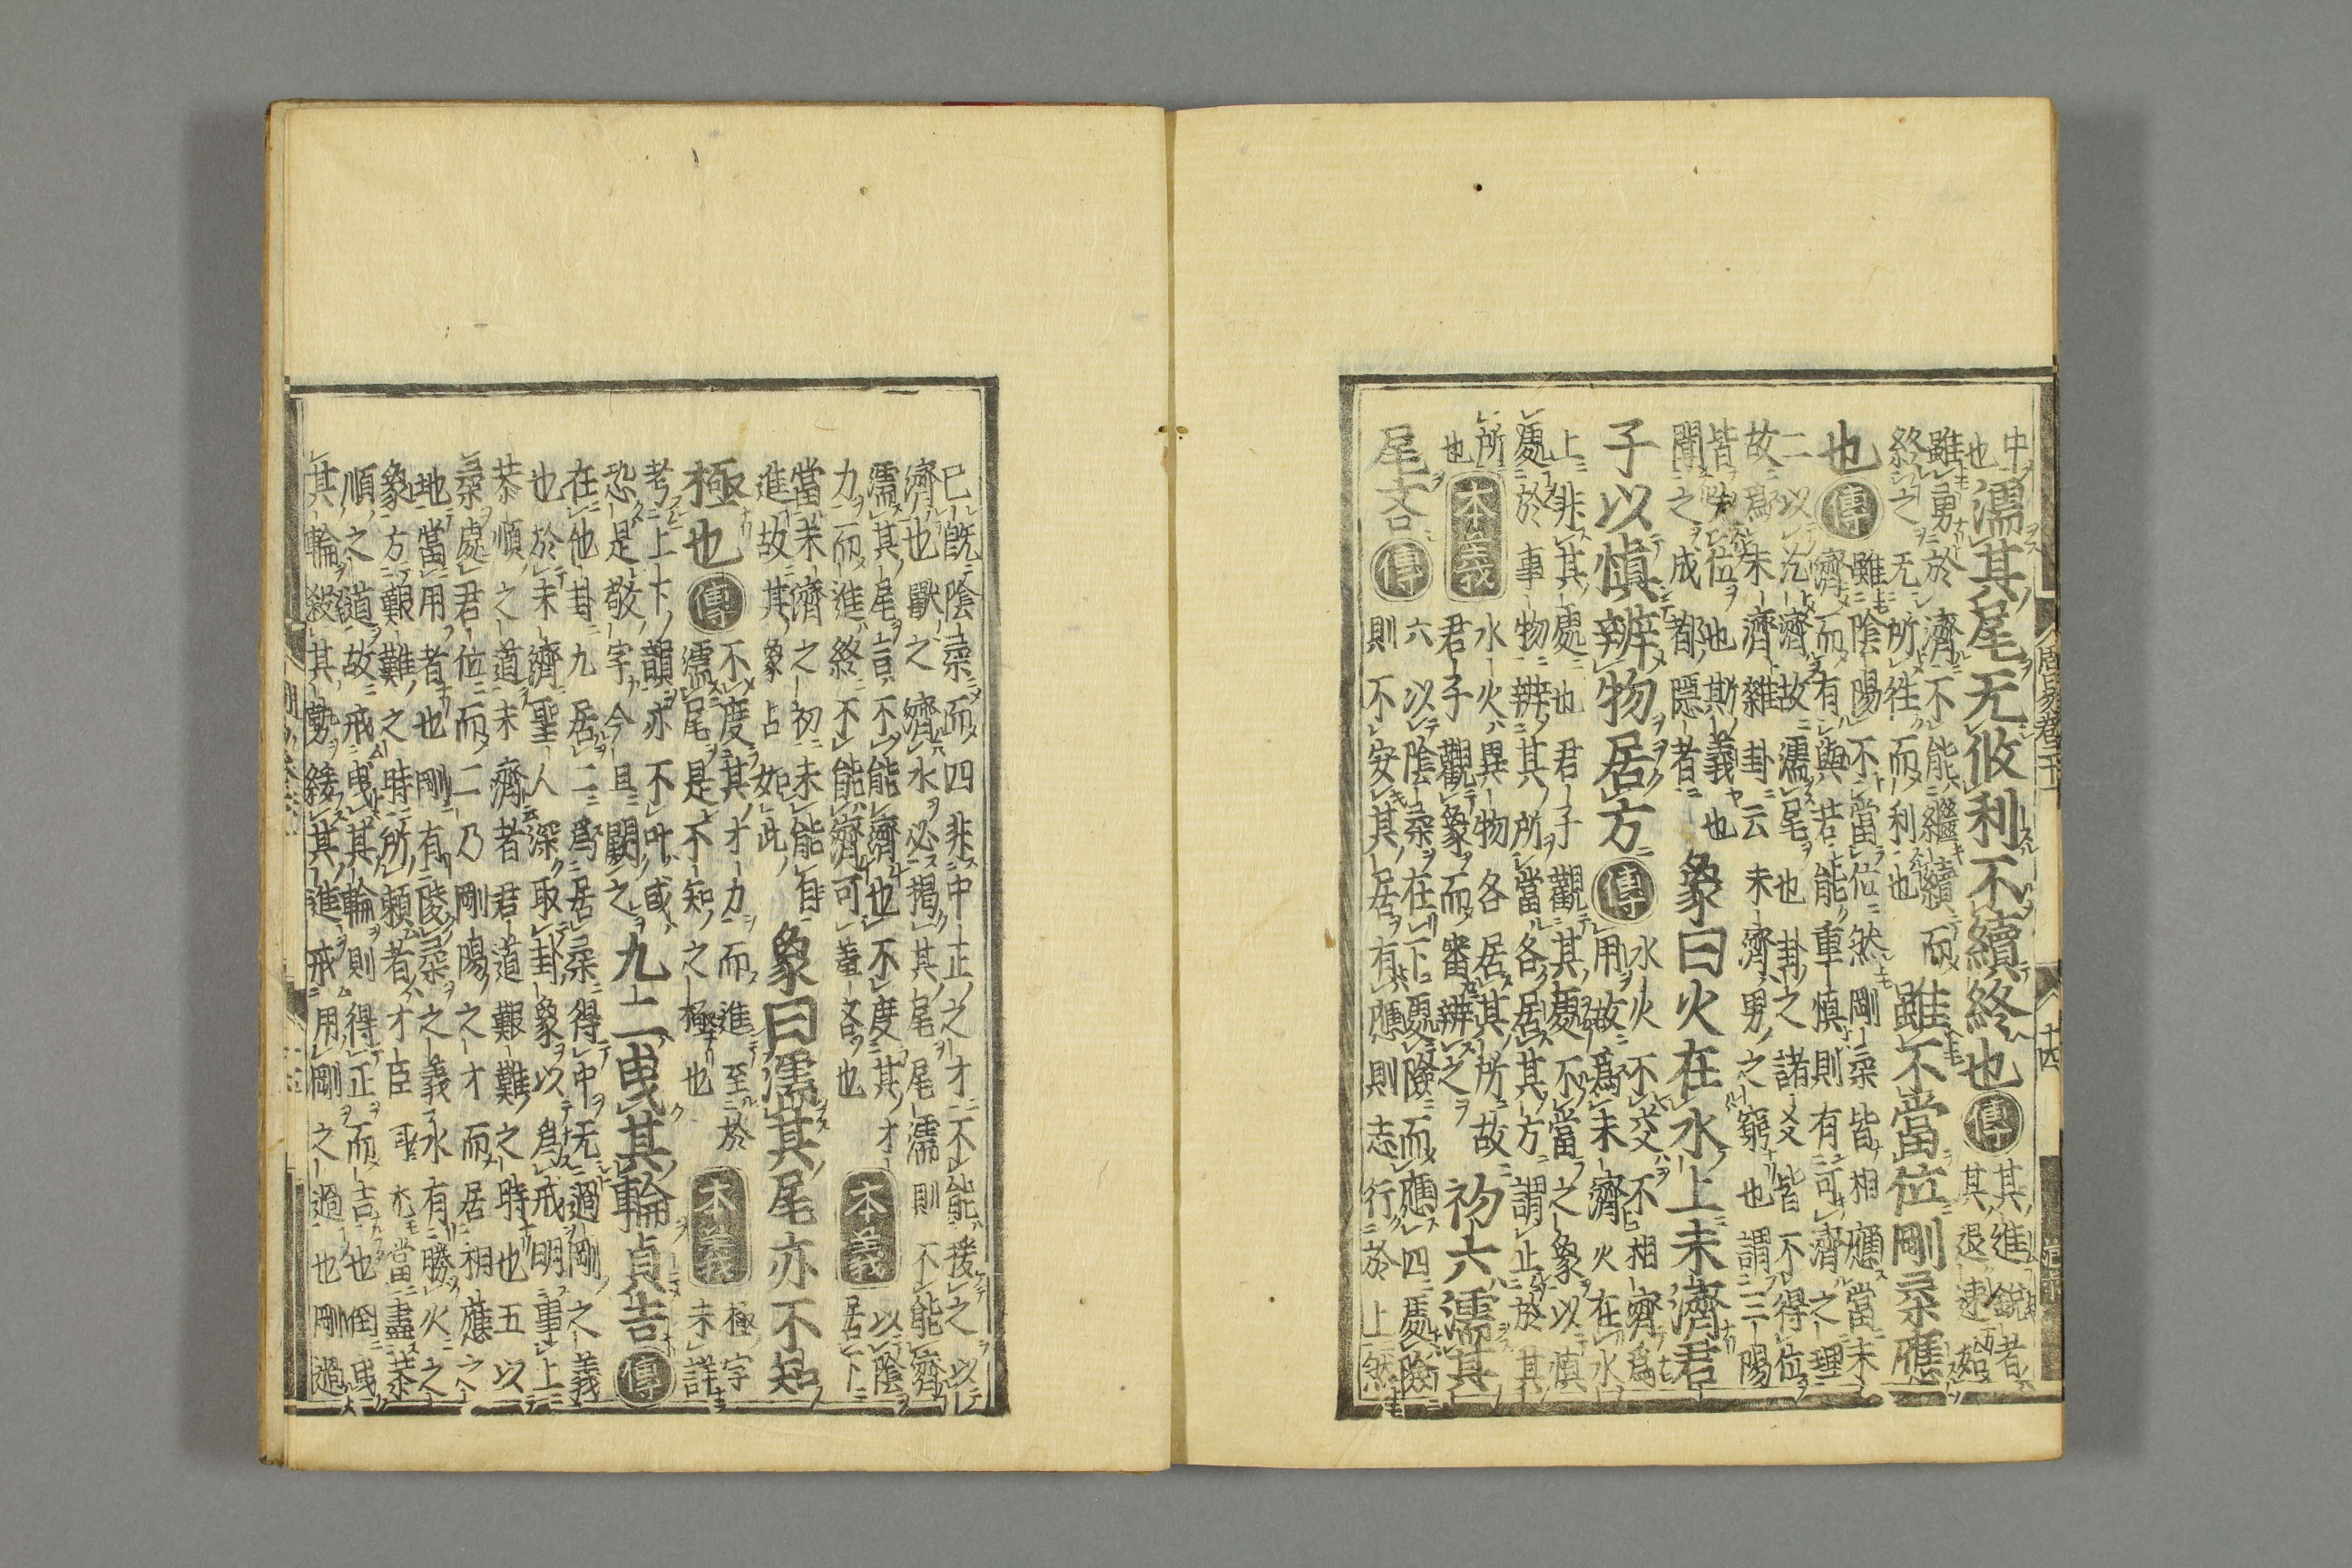 周易卷二十一
十四
中
也
濡其尾无攸利不續終也 傳
其進銳者
其退速始
雖勇於濟不能繼續而
終之无所往而利也
雖不當位剛柔應
也 傳
雖陰陽不當位然剛柔皆相應當未
濟而有與若能重慎則有可濟之理
二以汔濟故濡尾也卦之諸爻皆不得位
故爲未濟雜卦云未濟男之窮也謂三陽
皆失位也斯義也
聞之成都隱者
象曰火在水上未濟君
子以慎辨物居方 傳
水火不交不相濟爲
用故爲未濟火在水
上非其處也君子觀其處不當之象以慎
處於事物辨其所當各居其方謂止於其
所
也
本義
水火異物各居其所故
君子觀象而審辨之
初六濡其
尾吝 傳
六以陰柔在下處險而應四處險
則不安其居有應則志行於上然
已既陰柔而四非中正之才不能援之以
濟也獸之濟水必揭其尾尾濡則不能濟
濡其尾言不能濟也不度其才
力而進終不能濟可羞吝也
本義
以陰
居下
當未濟之初未能自
進故其象占如此
象曰濡其尾亦不知
極也 傳
不度其才力而進至於
濡尾是不知之極也
本義
極字
未詳
考上下韻亦不叶或
恐是敬字今且闕之
九二曳其輪貞吉 傳
在他卦九居二爲居柔得中无過剛之義
也於未濟聖人深取卦象以爲戒明事上
恭順之道未濟者君道艱難之時也五以
柔處君位而二乃剛陽之才而居相應之
地當用者也剛有陵柔之義水有勝火之
象方艱難之時所賴者才臣耳尤當盡恭
順之道故戒曳其輪則得正而吉也倒曳
其輪殺其勢緩其進戒用剛之過也剛過